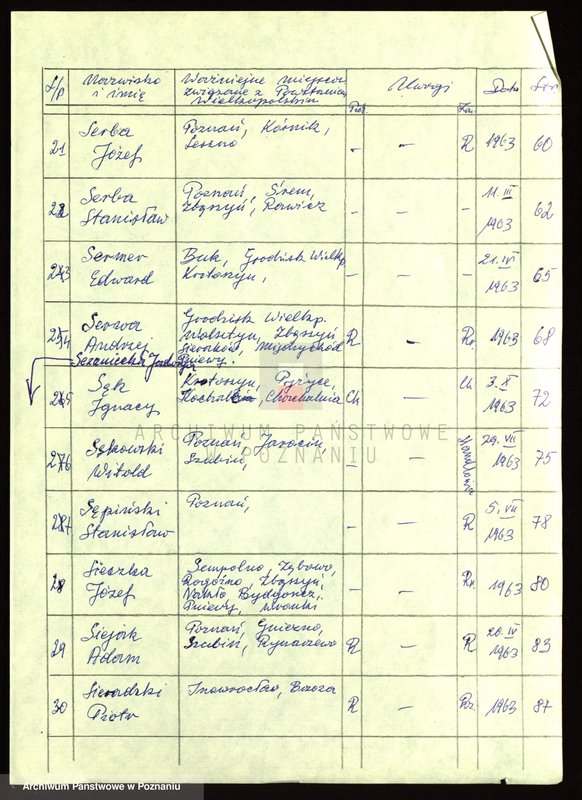 L/p Nazwisko i imię Ważniejsze miejsca związane z Powstaniem Wielkopolskim Uwagi Data Str.
21 Serba Józef Poznań, Kórnik, Leszno - - R 1963 60
22 Serba Stanisław Poznań, Śrem, Zbąszyń, Rawicz - - - 11.III 1963 62
23 Sermer Edward Buk, Grodzisk Wielkp. Krotoszyn, - - - 21.IV 1963 65
24 Serwa Andrzej Grodzisk Wielkp. Wolsztyn, Zbąszyń Sieraków, Międzychód Pniewy. R - R 1963 68
Sezaniecka Jadwiga
25 Sęk Ignacy Krotoszyn, Pyrzyce, Chachalnia Ch Ch 3.X 1963 72
26 Sękowski Witold Poznań, Jarocin, Szubin, - - 29.VII 1963 75
27 Sępiński Stanisław Poznań, - - R 5.VII 1963 78
28 Sieszka Józef Sempolno, Rogoźno, Zbąszyń, Nakło Bydgoszcz, Pniewy, Wronki - - 1963 80
29 Siejak Adam Poznań, Gniezno, Szubin, Rynarzewo R - R 20.IV 1963 83
30 Sieradzki Piotr Inowrocław, Brzoza R - 1963 87
ARCHIWUM PAŃSTWOWE
W POZNANIU
Archiwum Państwowe w Poznaniu